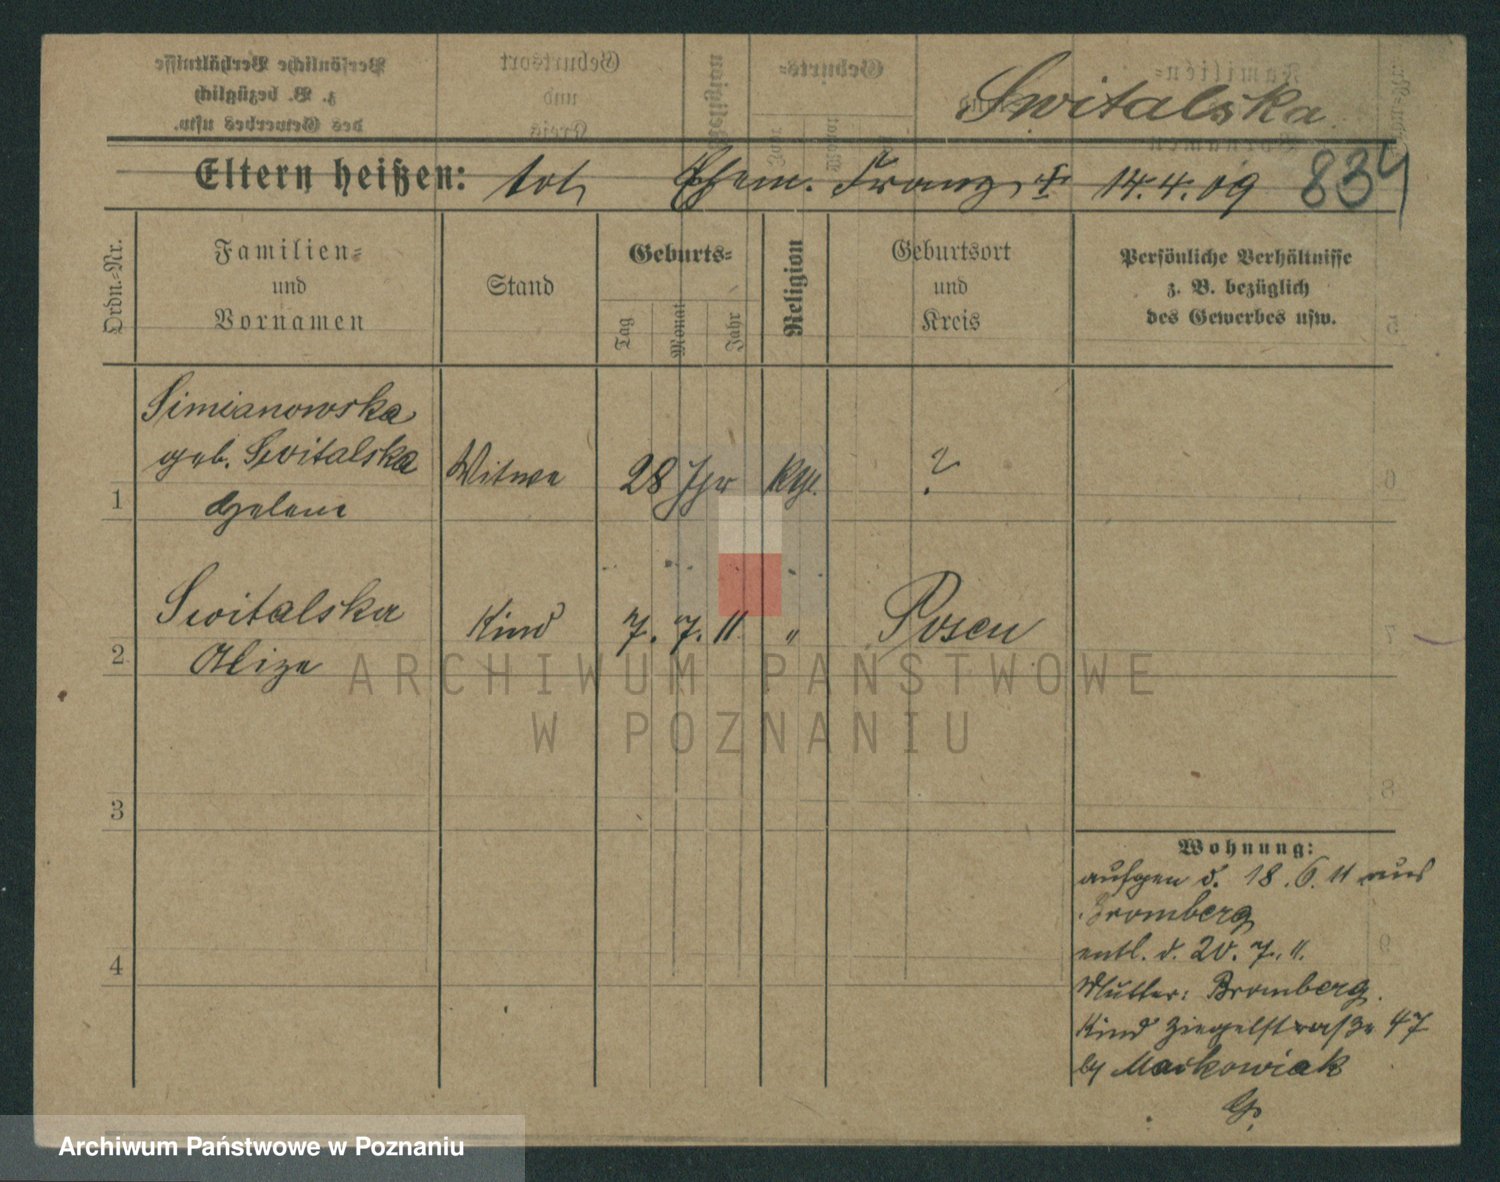 Switalska
Eltern heißen: tot, Ehem. Franz, † 14.4.09 834
Ordn.-Nr.
Familien-
und
Vornamen
Stand
Geburts-
Tag
Monat
Jahr
Religion
Geburtsort
und
Kreis
Persönliche Verhältnisse
z. B. bezüglich
des Gewerbes usw.
Simianowska
geb. Switalska
1 Helene Witwe 28 Jhr kth. ?
Switalska
2 Alize Kind 7. 7. 11. " Posen
ARCHIWUM PAŃSTWOWE
W POZNANIU
3
4
Wohnung:
aufgen d. 18.6.11 aus
Bromberg
entl. d. 20.7.11.
Mutter: Bromberg.
Kind Ziegelstraße 47
by Maikowiak
Archiwum Państwowe w Poznaniu